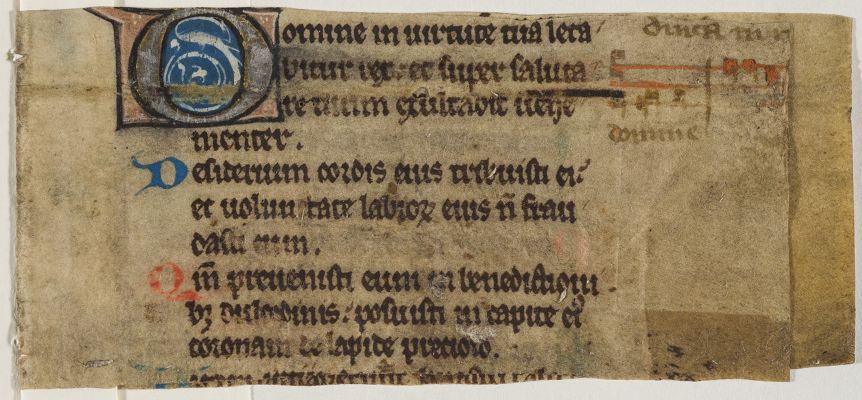 Domine in uirtute tua leta
bitur rex: et super saluta
re tuum exultabit uehe
menter.
Desiderium cordis eius tribuisti ei:
et uolun tate labioꝝ eius ñ frau
dasti eum.
Qm̃ preuenisti eum in benedictioni
bꝫ dulcedinis: posuisti in capite eiꝰ
coronam de lapide precioso.
domine